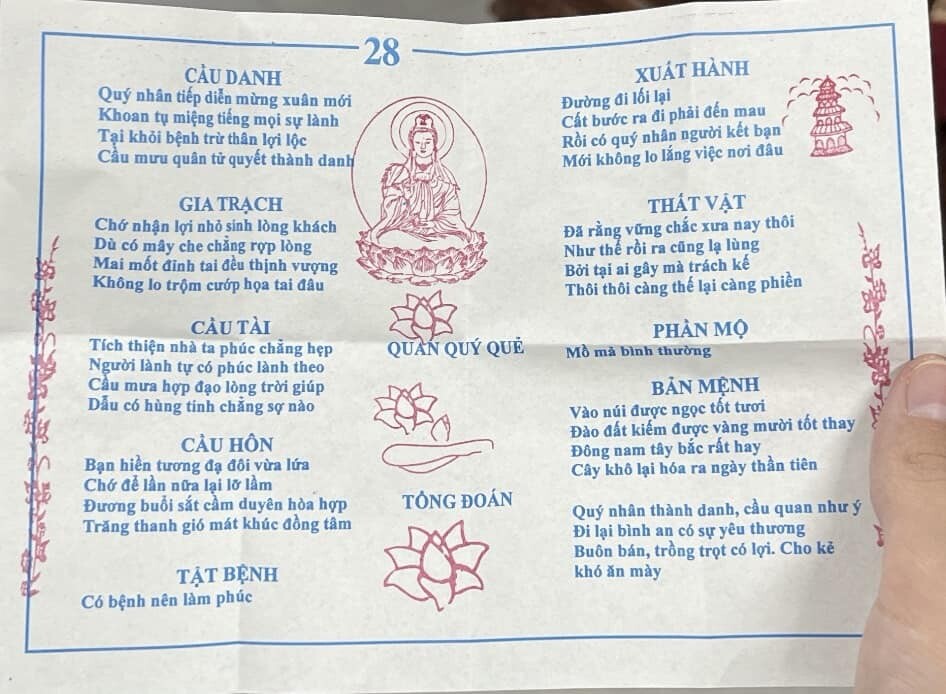 28
CẦU DANH
Quý nhân tiếp diễn mừng xuân mới
Khoan tụ miệng tiếng mọi sự lành
Tại khỏi bệnh trừ thân lợi lộc
Cầu mưu quân tử quyết thành danh
GIA TRẠCH
Chớ nhận lợi nhỏ sinh lòng khách
Dù có mây che chẳng rợp lòng
Mai mốt đinh tai đều thịnh vượng
Không lo trộm cướp họa tai đâu
CẦU TÀI
Tích thiện nhà ta phúc chẳng hẹp
Người lành tự có phúc lành theo
Cầu mưa hợp đạo lòng trời giúp
Dẫu có hùng tinh chẳng sợ nào
CẦU HÔN
Bạn hiền tương đạ đôi vừa lứa
Chớ để lần nữa lại lỡ lầm
Đương buổi sắt cầm duyên hòa hợp
Trăng thanh gió mát khúc đồng tâm
TẬT BỆNH
Có bệnh nên làm phúc
QUAN QUÝ QUẺ
TỔNG ĐOÁN
XUẤT HÀNH
Đường đi lối lại
Cất bước ra đi phải đến mau
Rồi có quý nhân người kết bạn
Mới không lo lắng việc nơi đâu
THẤT VẬT
Đã rằng vững chắc xưa nay thôi
Như thế rồi ra cũng lạ lùng
Bởi tại ai gây mà trách kế
Thôi thôi càng thế lại càng phiền
PHẦN MỘ
Mồ mả bình thường
BẢN MỆNH
Vào núi được ngọc tốt tươi
Đào đất kiếm được vàng mười tốt thay
Đông nam tây bắc rất hay
Cây khô lại hóa ra ngày thần tiên
Quý nhân thành danh, cầu quan như ý
Đi lại bình an có sự yêu thương
Buôn bán, trồng trọt có lợi. Cho kẻ
khó ăn mày